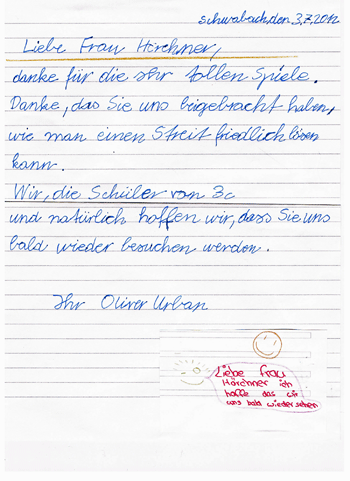 schwabach, den 3.7.2012
Liebe Frau Hörchner,
danke für die Ihr tollen Spiele.
Danke, das Sie uns beigebracht haben,
wie man einen Streit friedlich lösen
kann.
Wir, die Schüler von 3c
und natürlich hoffen wir, dass Sie uns
bald wieder besuchen werden.
Ihr Oliver Urban
Liebe Frau
Hörchner ich
hoffe das wir
uns bald wiedersehen